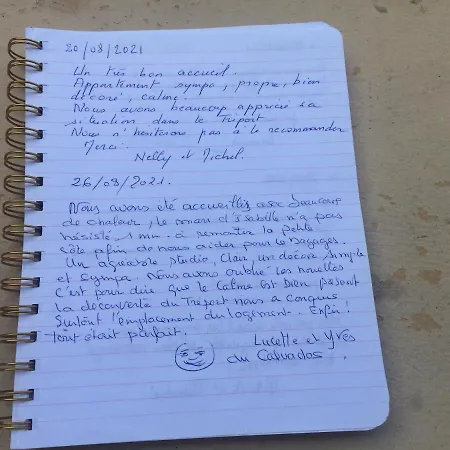 20/08/2021
Un très bon accueil.
Appartement sympa, propre, bien
décoré, calme.
Nous avons beaucoup apprécié sa
situation dans le Tréport.
Nous n'hésiterons pas à le recommander
Merci.
Nelly et Michel.
26/08/2021.
Nous avons été accueillis avec beaucoup
de chaleur, le d'Isabelle n'a pas
hésité, 1 mn. à remonter la petite
côte afin de nous aider pour les bagages.
Un agréable studio, clair, un décor simple
et sympa. Nous avons oublié les
C'est pour dire que le calme est bien présent
la découverte du Tréport nous a conquis
Surtout l'emplacement du logement. Enfin!
tout était parfait.
Lucette et Yves
du Calvados.